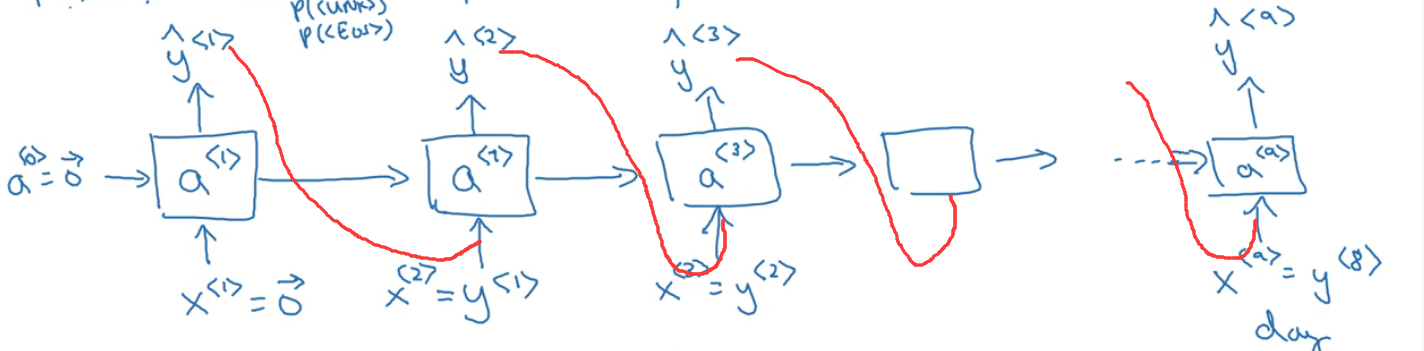 p(<UNK>)
p(<EOS>)
ŷ<1> ŷ<2> ŷ<3> ŷ<9>
a<0>=0⃗ a<1> a<2> a<3> a<9>
x<1>=0⃗ x<2>=y<1> x<3>=y<2> x<9>=y<8>
day